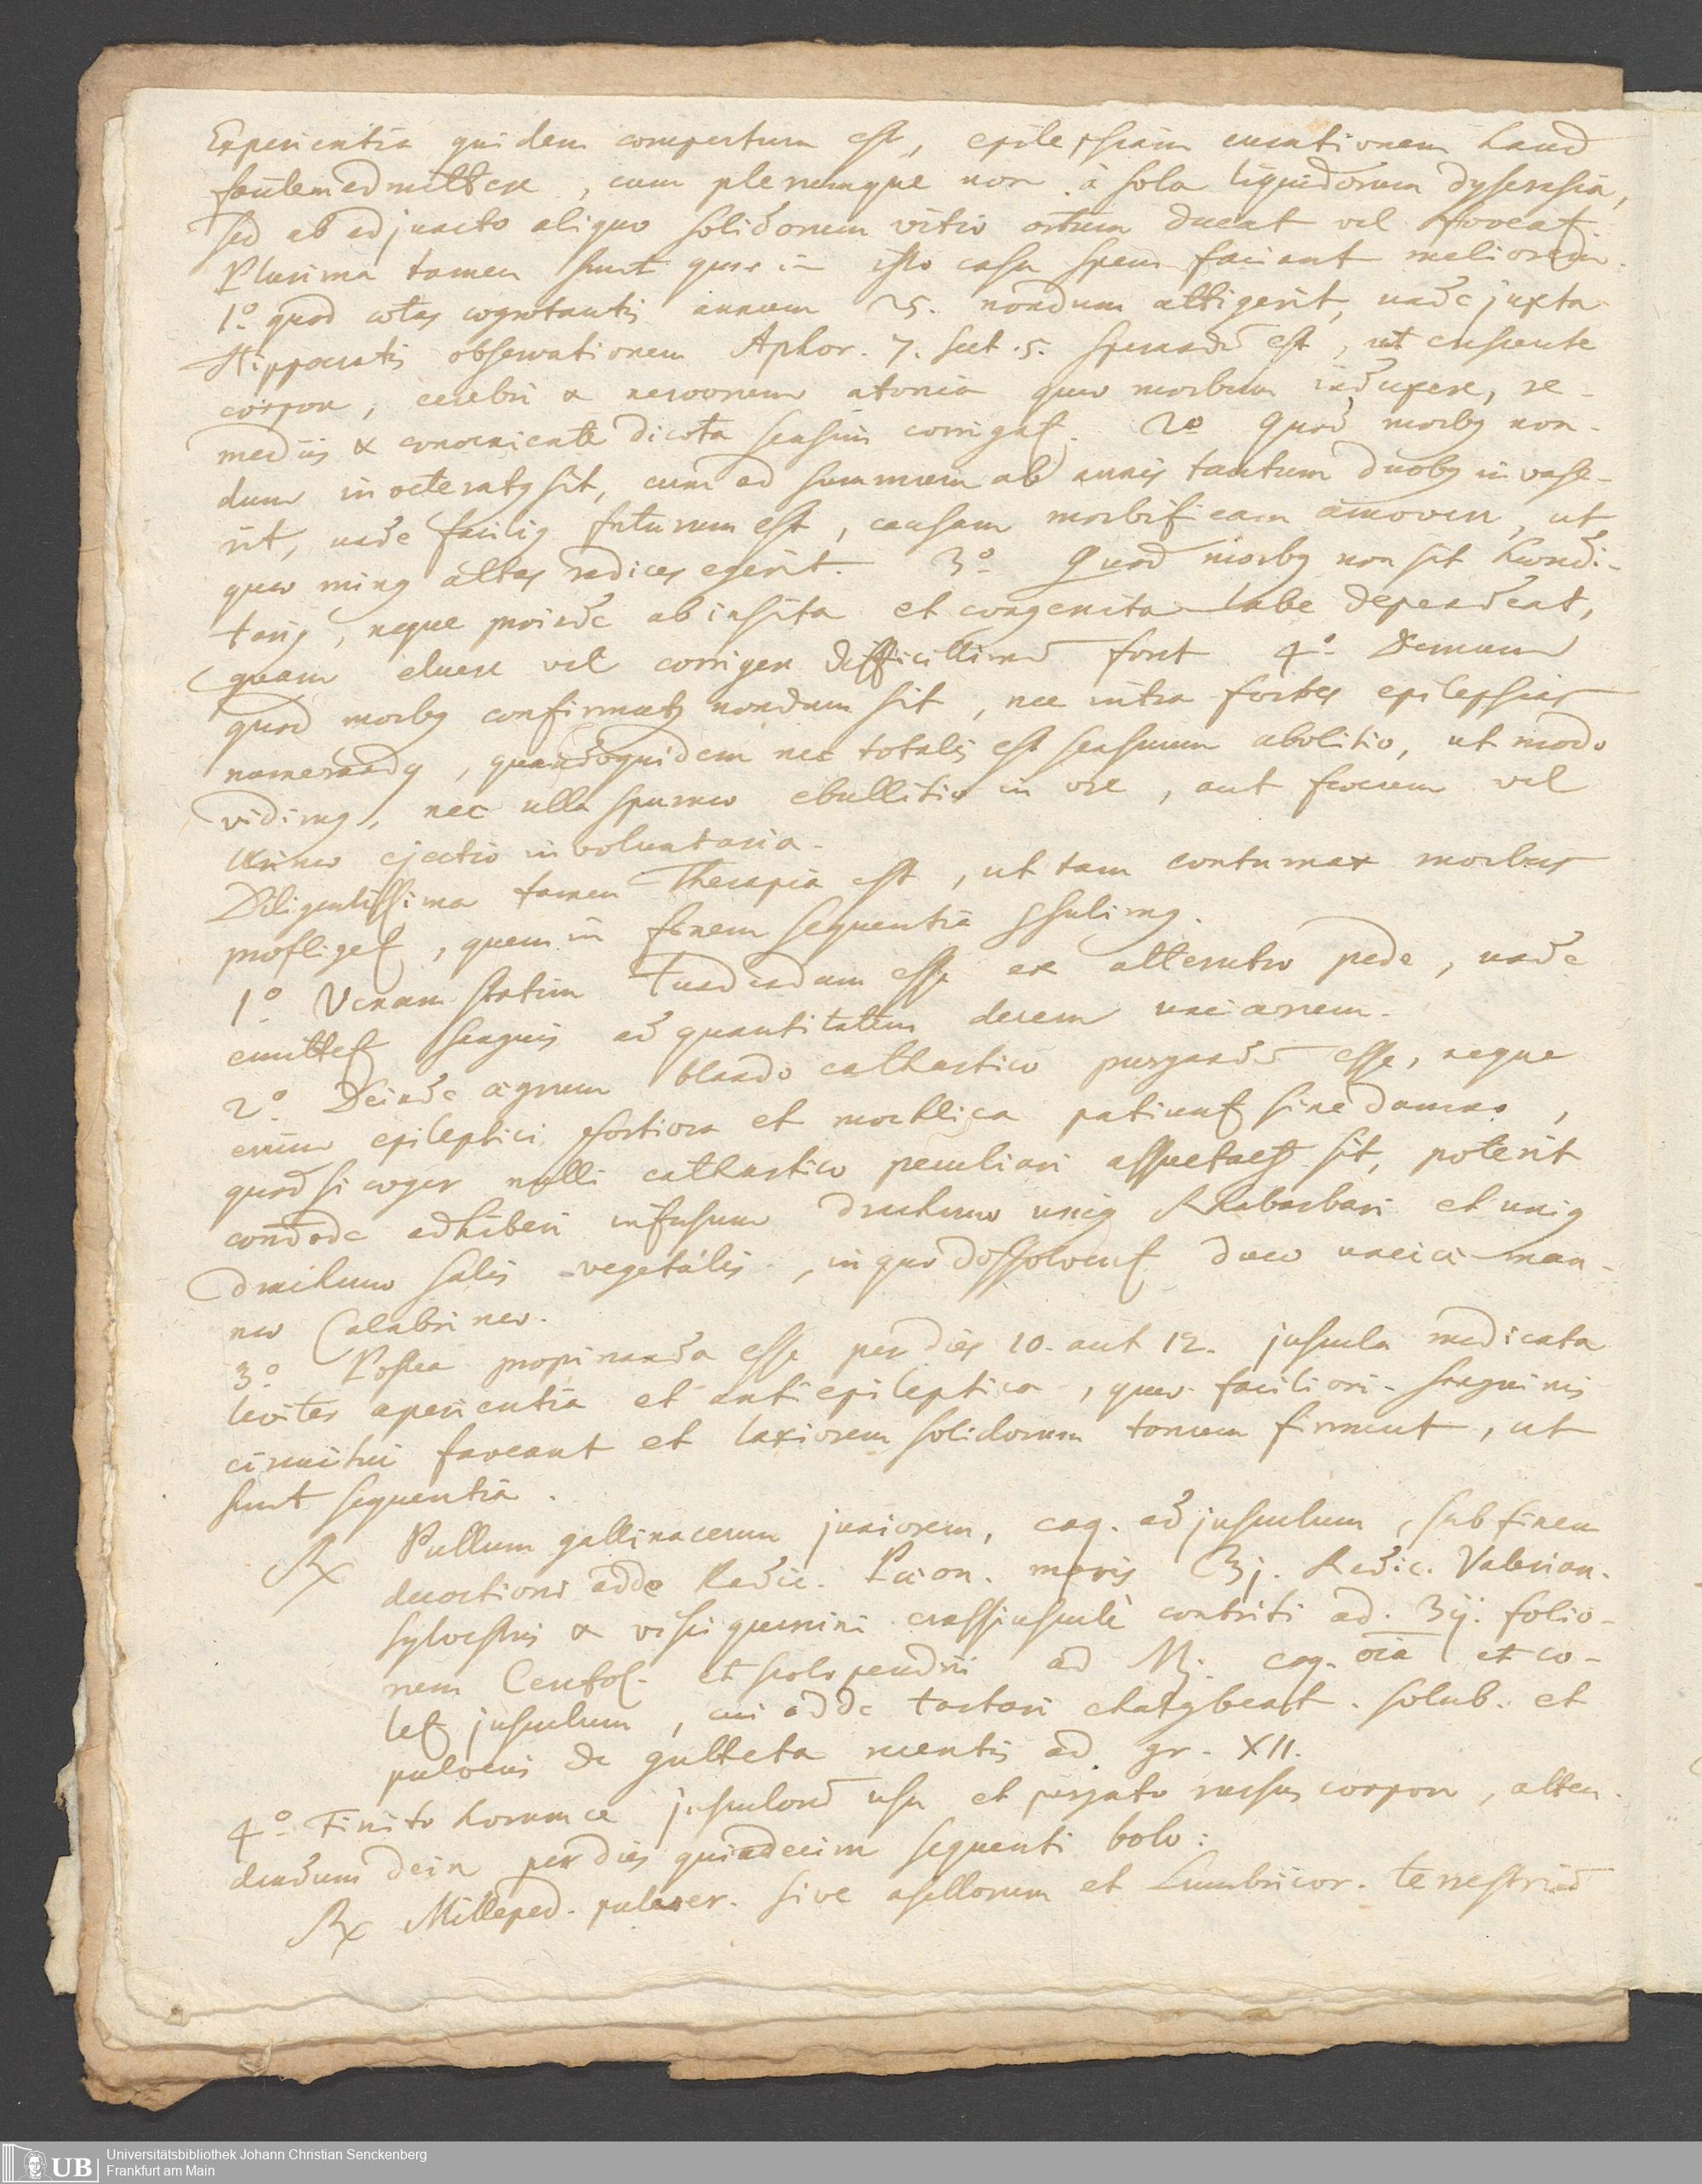 Experientia quidem compertum est, epilepsiam curationem haud
facilem admittere, cum plerumque non à sola liquidorum dyscrasia,
sed ab adjuncto aliquo solidorum vitio ortum ducat vel foveat.
Plurima tamen sunt quæ in isto casu spem faciant meliorem.
1º quod ætas ægrotantis annum 25. nondum attigerit, unde juxta
Hippocratis observationem Aphor. 7. sect. 5. sperandū est, ut crescente
corpore, cerebri & nervorum atonia quæ morbum induxere, re-
mediis & conveniente dicæta sensim corrigatʳ. 2º Quod morbꝰ non-
dum inveteratꝰ sit, cum ad summum ab annis tantum duobꝰ invase-
rit, unde faciliꝰ futurum est, causam morbificam amovere, ut
quæ minꝰ altas radices egerit. 3º Quod morbꝰ non sit hæredi-
tariꝰ, neque proinde ab insita et congenita labe dependeat,
quam eluere vel corrigere difficillimū foret 4º Demum
quod morbꝰ confirmatꝰ nondum sit, nec intra fortes epilepsias
numerandꝰ, quandoquidem nec totalis est sensuum abolitio, ut modo
vidimꝰ, nec ulla spumæ ebullitio in ore, aut fæcum vel
Urinæ ejectio involuntaria.
Diligentissima tamen Therapia est, ut tam contumax morbus
profligetʳ, quem in finem sequentia consulimꝰ.
1º Venam statim tundendam esse ex alterutro pede, unde
emittetʳ sanguis ad quantitatem decem unciarum.
2º Deinde ægrum blando cathartico purgandū esse, neque
enim epileptici fortiora et mochlica patiuntʳ sine damno,
quod si æger nulli cathartico peculiari assuetus sit, poterit
commode adhiberi infusum drachmæ uniꝰ Rhabarbari et uniꝰ
drachmæ salis vegetalis, in quo dissolventʳ duæ unciæ man-
næ Calabrinæ.
3º Postea propinanda esse per dies 10. aut 12. juscula medicata
leviter aperientia et antiepileptica, quæ faciliori sanguinis
circuitui faveant et laxiorem solidorum tonum firment, ut
sunt sequentia.
℞ Pullum gallinaceum juniorem, coq. ad jusculum, sub finem
decoctionis adde Radic. Pæon. maris ʒj. Radic. Valerian.
sylvestris & visci quercini crassiusculè contriti ad. ʒij. folio-
rum Ceterac. et scolopendrii ad Mj. coq. oīa et co-
letʳ jusculum, cui adde tartari chalybeat. solub. et
pulveris de gutteta recentis ad gr. XII.
4º Finito horumce jusculorū usu et purgato rursus corpore, alten-
dendum dein per dies quindecim sequenti bolo:
℞ Milleped. pulver. sive asellorum et Lumbricor. terrestriū
Universitätsbibliothek Johann Christian Senckenberg
Frankfurt am Main
UB